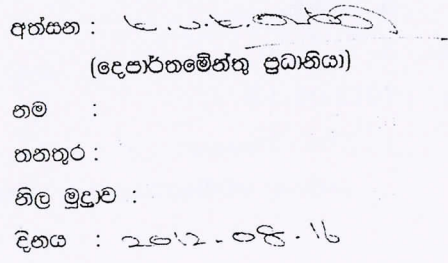 අත්සන :
(දෙපාර්තමේන්තු ප්‍රධානියා)
නම :
තනතුර :
නිල මුද්‍රාව :
දිනය : 2012-08-16